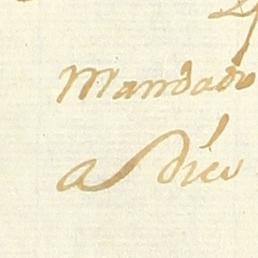 Mandado
a Dieu